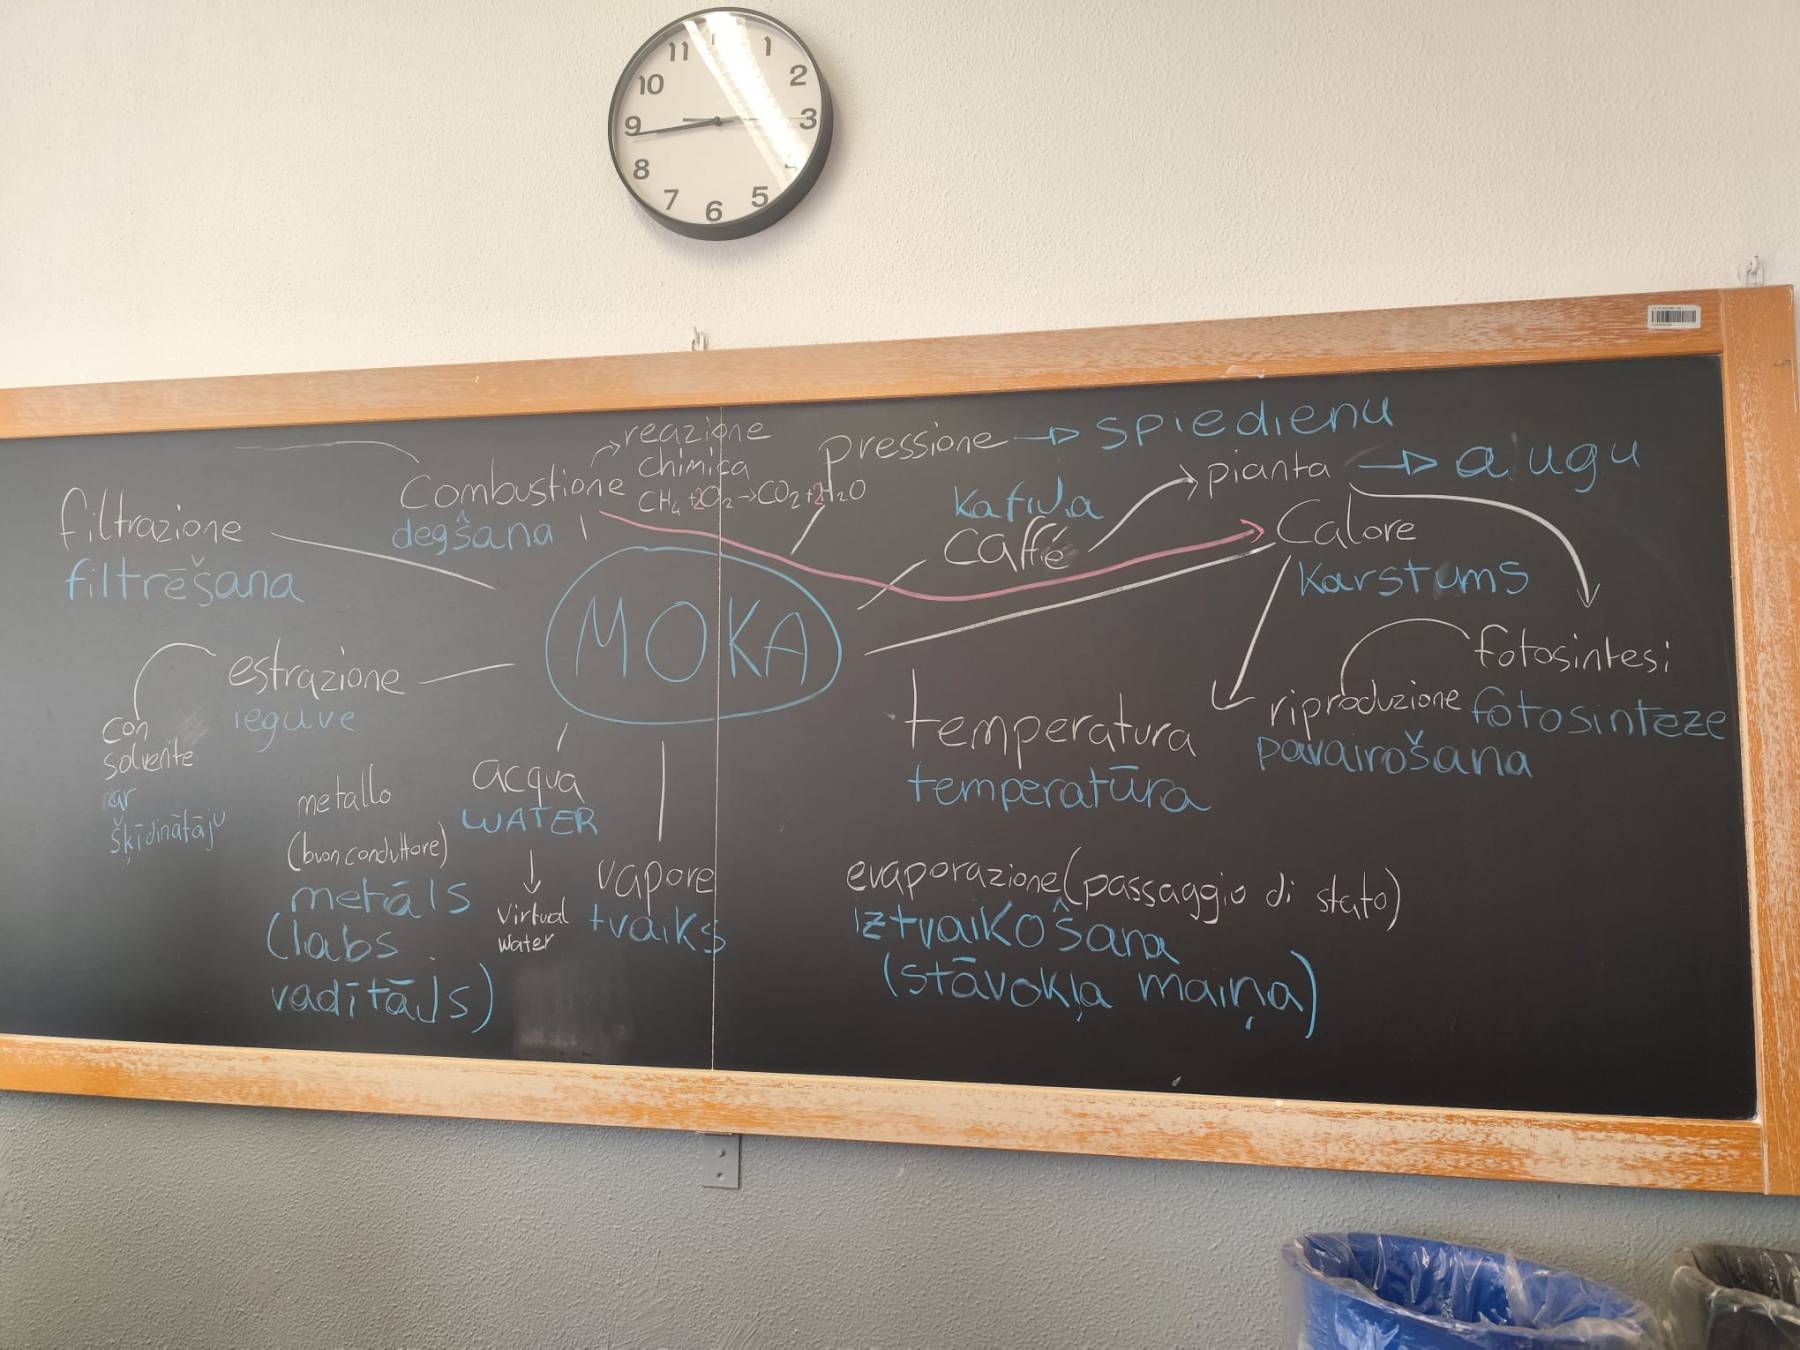 11
1
10
2
9
3
8
7
6
5
reazione
chimica
CH₄ + 2O₂ → CO₂ + 2H₂O
pressione → spiedienu
Combustione
degšana
kafija
caffé
pianta → augu
filtrazione
filtrēšana
Calore
karstums
MOKA
fotosintesi
fotosinteze
riproduzione
pavairošana
estrazione
ieguve
con
solvente
ar
šķīdinātāju
temperatura
temperatūra
metallo
(buon conduttore)
metāls
(labs
vadītājs)
acqua
WATER
virtual
water
vapore
tvaiks
evaporazione (passaggio di stato)
iztvaikošana
(stāvokļa maiņa)